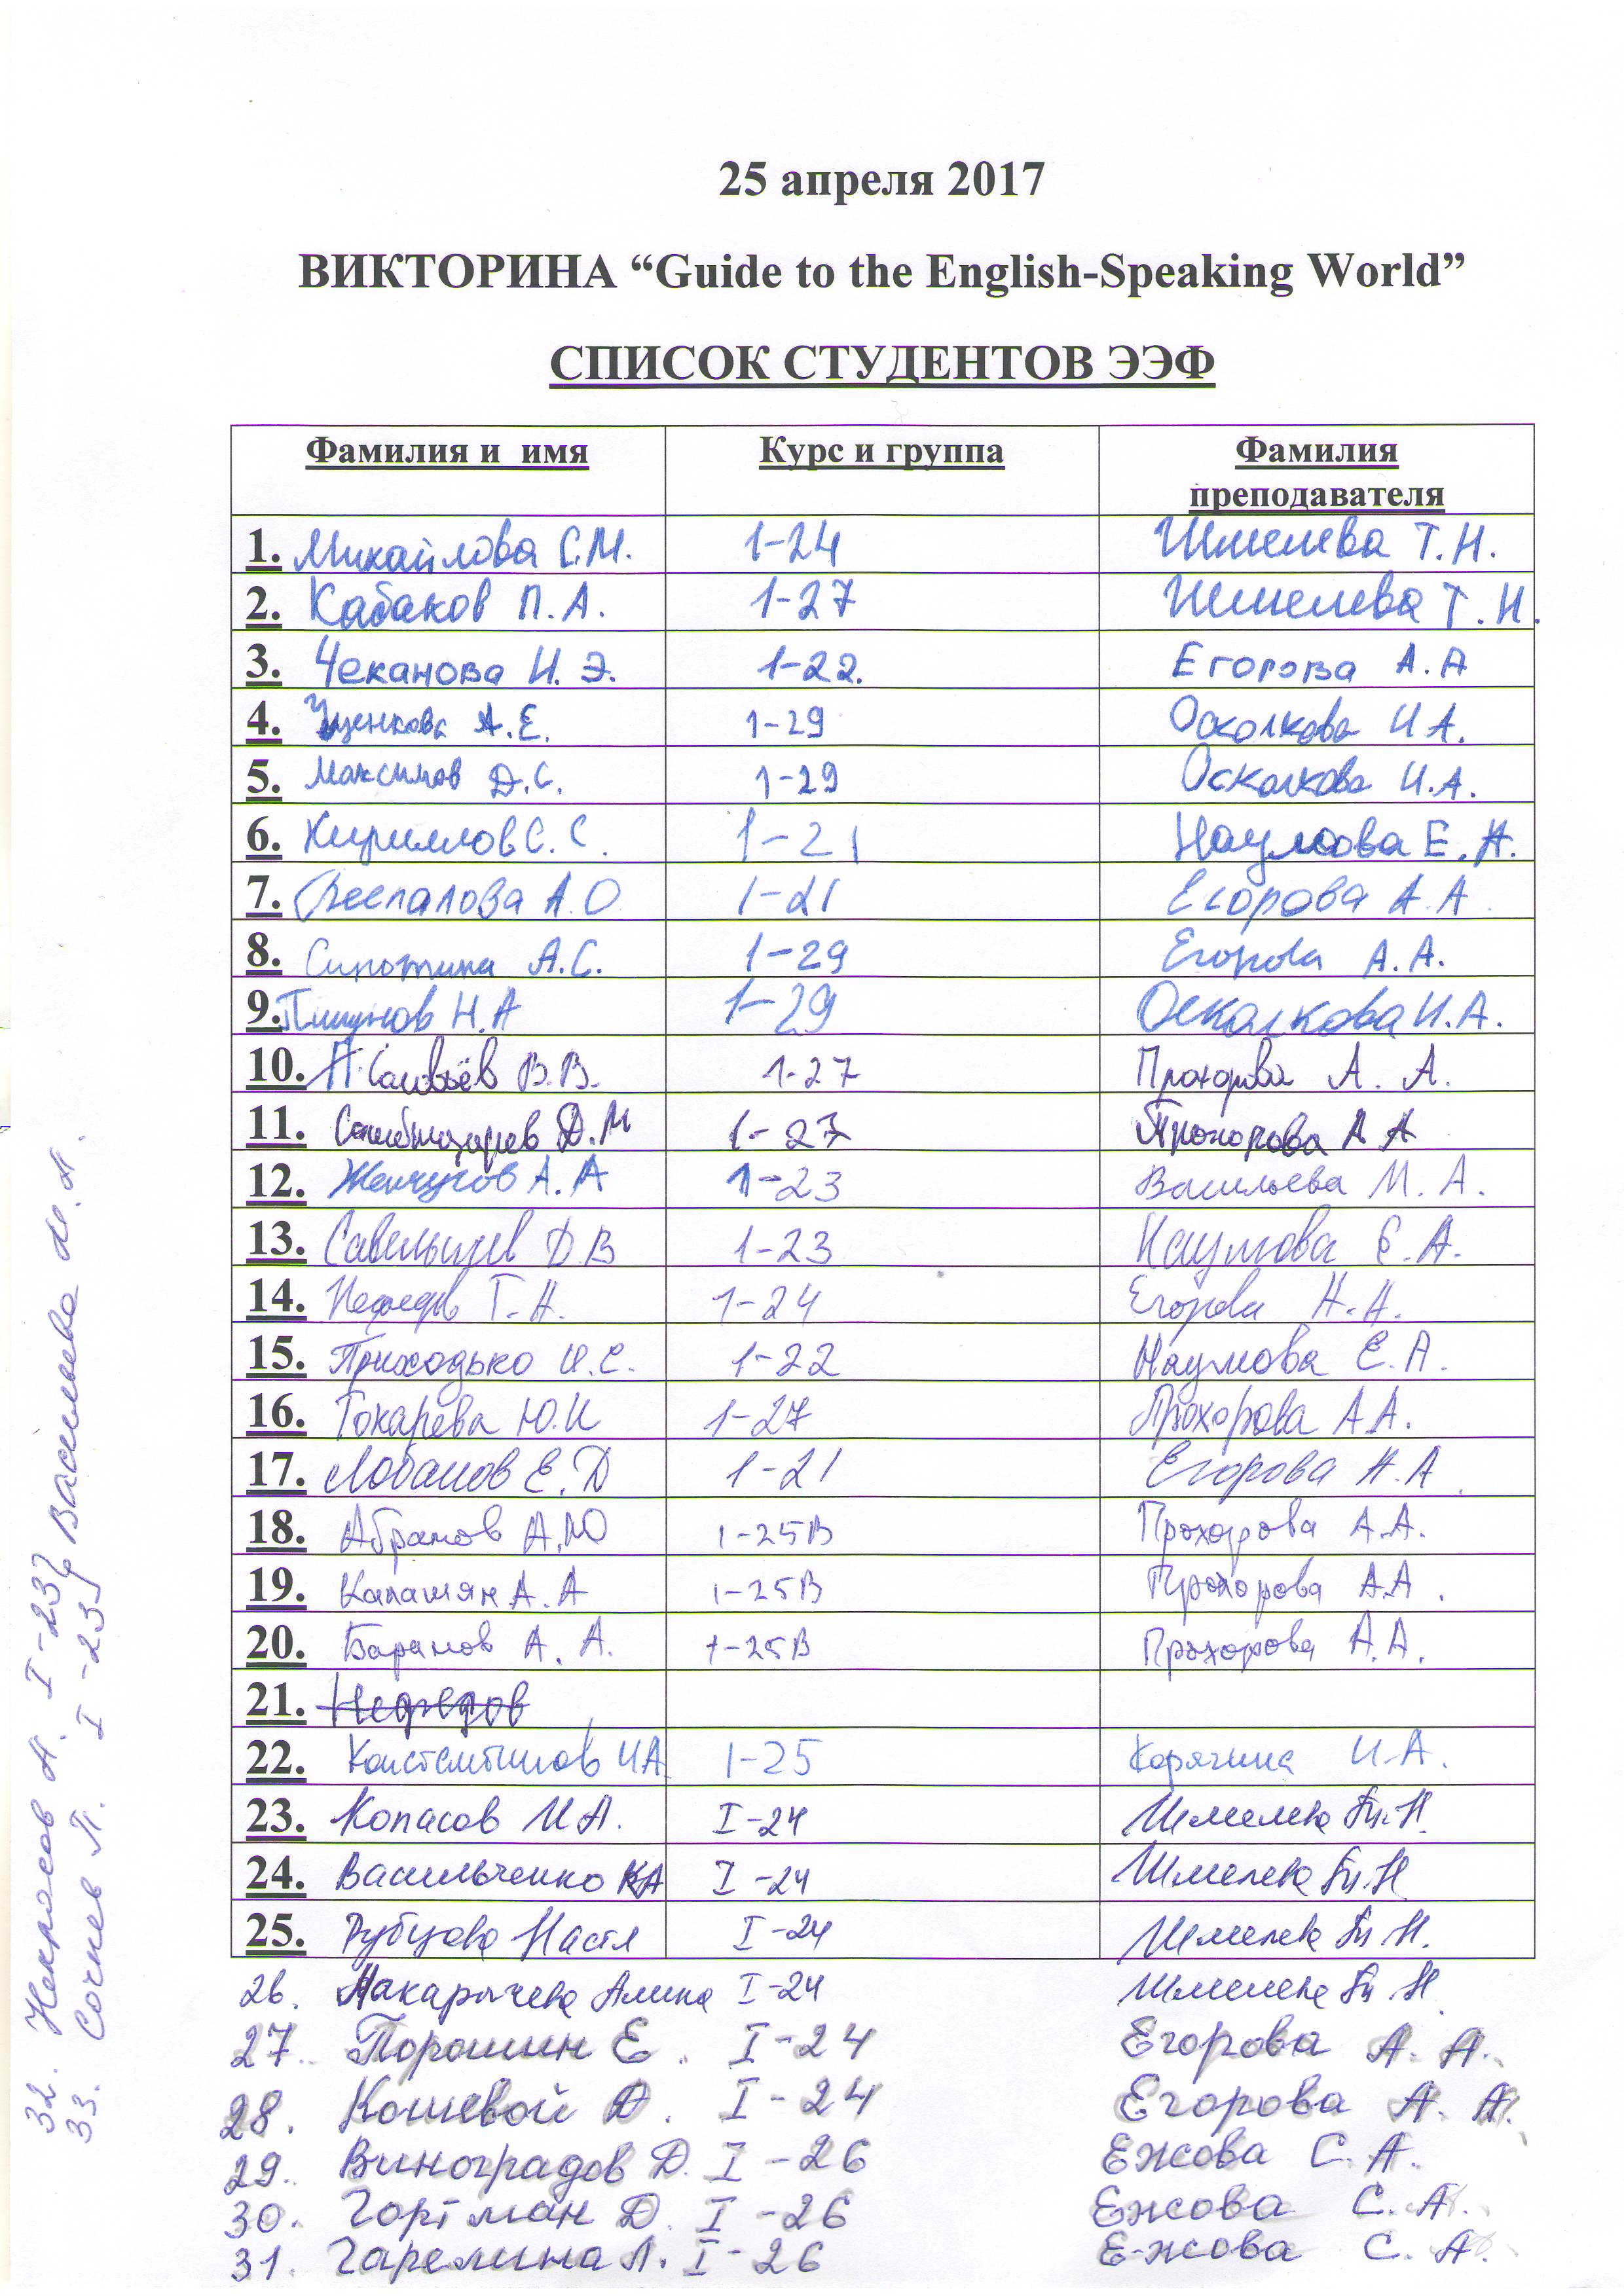 25 апреля 2017
ВИКТОРИНА “Guide to the English-Speaking World”
СПИСОК СТУДЕНТОВ ЭЭФ
Фамилия и имя Курс и группа Фамилия преподавателя
1. Михайлова С.М. 1-24 Шмелева Т.Н.
2. Кабаков П.А. 1-27 Шмелева Т.Н.
3. Чеканова И.Э. 1-22. Егорова А.А
4. А.Е. 1-29 Осколкова И А.
5. Максимов Д.С. 1-29 Осколкова И.А.
6. Кириллов С.С. 1-21 Наумова Е.А.
7. Беспалова А.О. 1-21 Егорова А.А.
8. Сиротина А.С. 1-29 Егорова А.А.
9. Н.А 1-29 Осколкова И.А.
10. Соловьёв В.В. 1-27 Прохорова А.А.
11. Д.М 1-27 Прохорова А А
12. Жемчугов А.А 1-23 Васильева М.А.
13. Савельичев Д В 1-23 Наумова Е.А.
14. Нефедов Г.А. 1-24 Егорова А.А.
15. Приходько И.С. 1-22 Наумова Е.А.
16. Токарева Ю.И 1-27 Прохорова А.А.
17. Лобанов Е.Д 1-21 Егорова А.А.
18. Абрамов А.Ю 1-25В Прохорова А.А.
19. А.А 1-25В Прохорова А.А.
20. Баранов А.А. 1-25В Прохорова А.А.
21. Нефедов
22. Константинов И.А. 1-25 Корягина И.А.
23. Копасов И.А. I-24 Шмелева Т.Н.
24. Васильченко КА I-24 Шмелева Т.Н
25. Рубцова Настя I-24 Шмелева Т.Н.
26. Макарычева Алина I-24 Шмелева Т.Н.
27. Порошин Е. I-24 Егорова А.А.
28. Кошевой Д. I-24 Егорова А.А.
29. Виноградов Д. I-26 Ежова С.А.
30. Гортман Д. I-26 Ежова С.А.
31. Гарелина Л. I-26 Ежова С.А.
32. Некрасов А. I-23 Васильева М.А.
33. Сочнев П. I-23